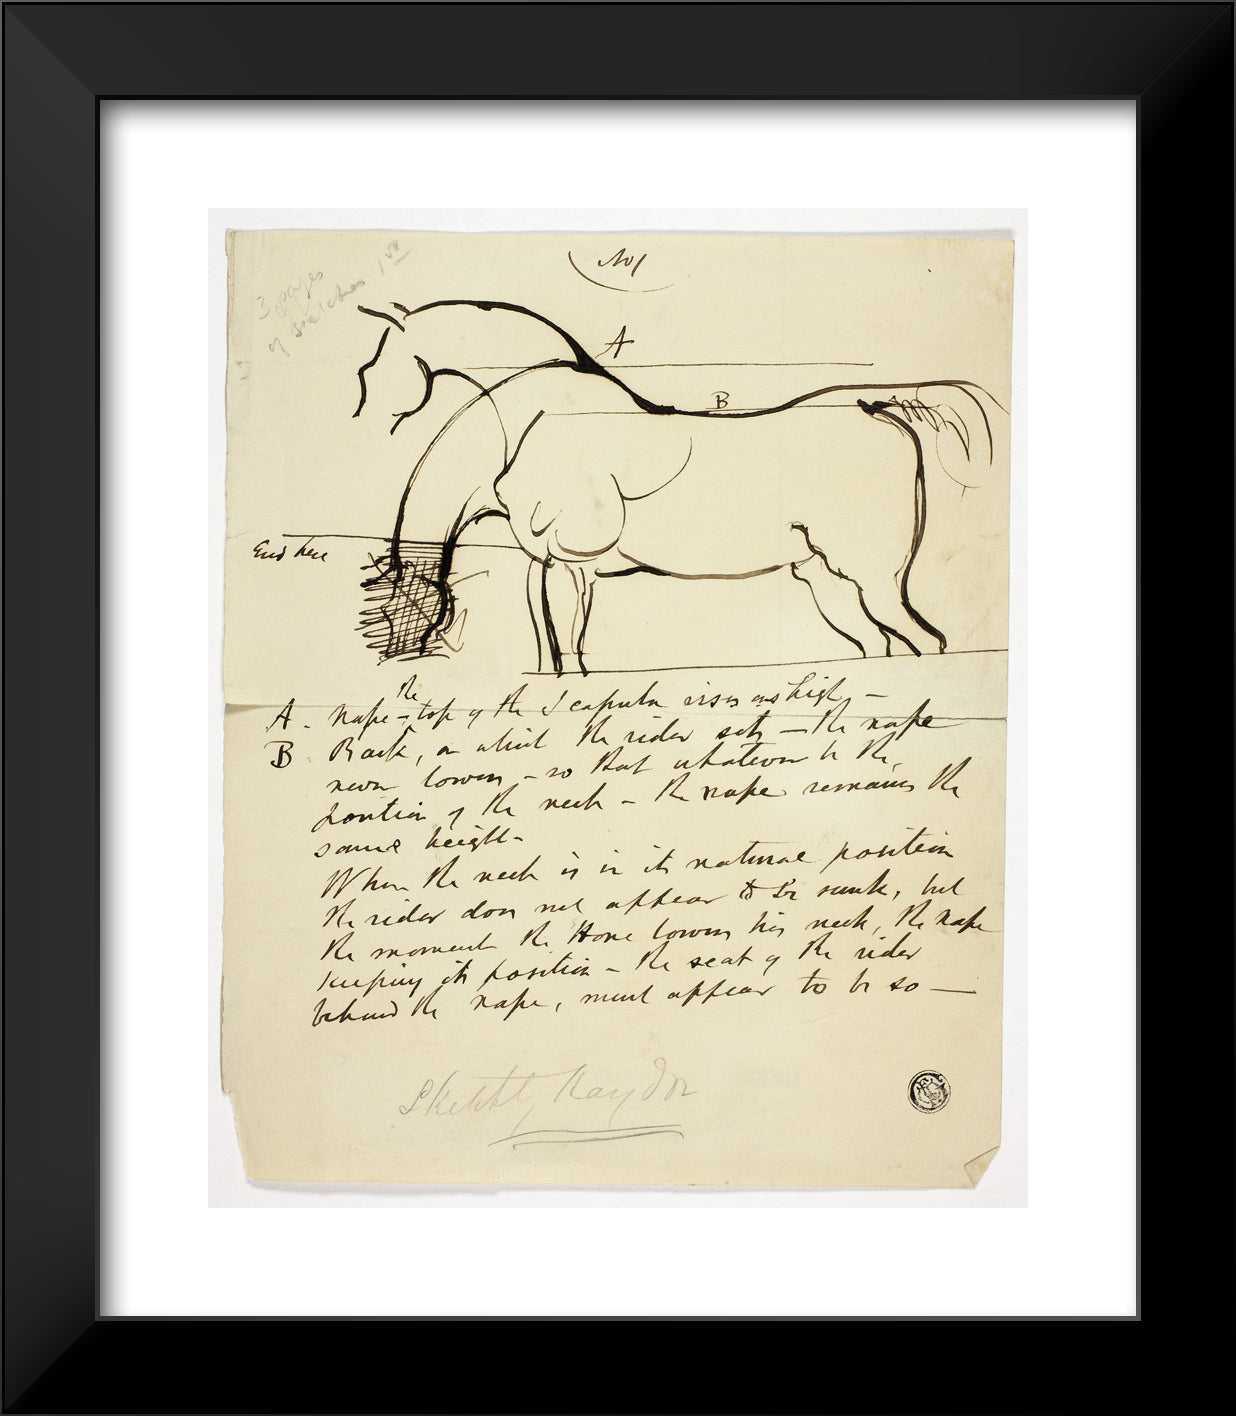 No 1
3 pages
of sketches 1 vo
A
B
End here
the
A. Nape - top of the Scapula rises as high -
B Back, on which the rider sits - the nape
never lowers - so that whatever be the
position of the neck - the nape remains the
same height -
When the neck is in its natural position
the rider does not appear to be sunk, but
the moment the Horse lowers his neck, the nape
keeping its position - the seat of the rider
behind the nape, must appear to be so —
Sketch by Haydon